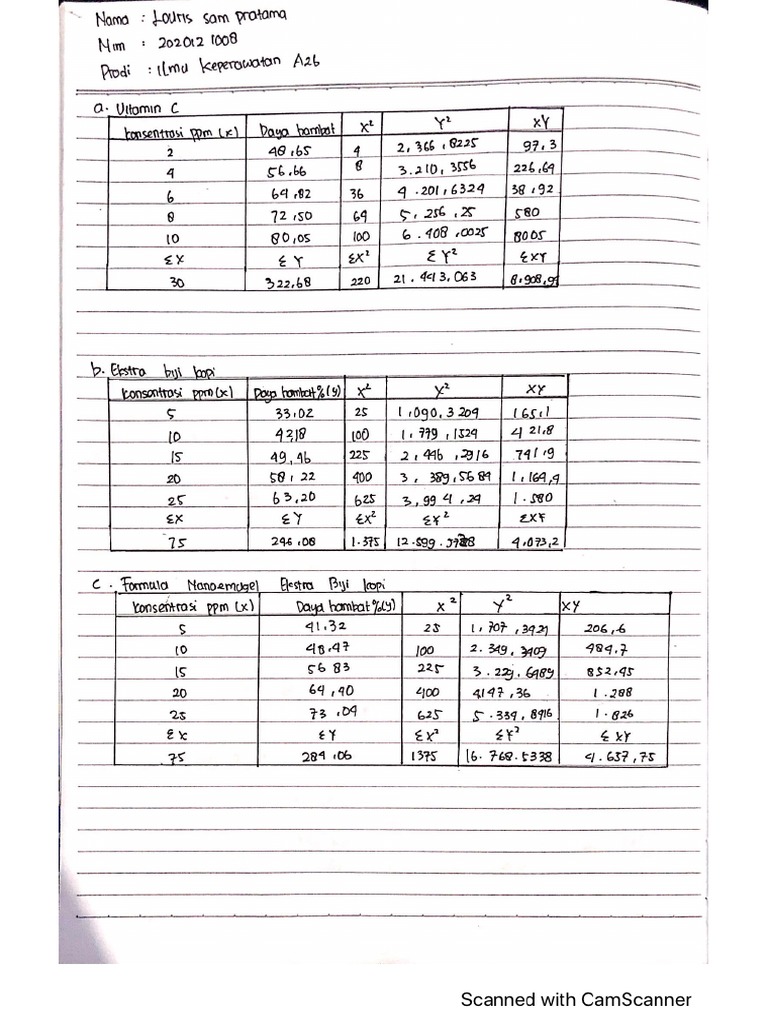 Nama : Louris sam pratama
Nim : 202012 1008
Prodi : Ilmu keperawatan A26
a. Vitamin C
konsentrasi ppm (x) Daya hambat X² Y² XY
2 48,65 4 2,366,8225 97,3
4 56,66 8 3.210,3556 226,64
6 64,82 36 4.201,6324 38,92
8 72,50 64 5,256,25 580
10 80,05 100 6.408,0025 8005
ΣX ΣY ΣX² ΣY² ΣXY
30 322,68 220 21.443,063
b. Ekstra biji kopi
konsantrasi ppm(x) Daya hambat%(y) X² Y² XY
5 33,02 25 1,090,3204 165,1
10 42,18 100 1,779,1524 421,8
15 49,46 225 2,446,2916 741,9
20 58,22 400 3,389,5684 1,164,4
25 63,20 625 3,994,24 1.580
ΣX ΣY ΣX² ΣY² ΣXY
75 246,08 1.375 4.073,2
c. Formula Nanoemugel Ekstra Biji kopi
konsentrasi ppm (x) Daya hambat%(y) X² Y² XY
5 41.32 25 1,707,3424 206,6
10 48,47 100 2.349,3409 484,7
15 56 83 225 3.229,6489 852,45
20 64,40 400 4147,36 1.288
25 73,04 625 5.339,8916 1.826
Σx ΣY ΣX² ΣY² Σ XY
75 284,06 1375 16.768.5338 4.657,75
Scanned with CamScanner